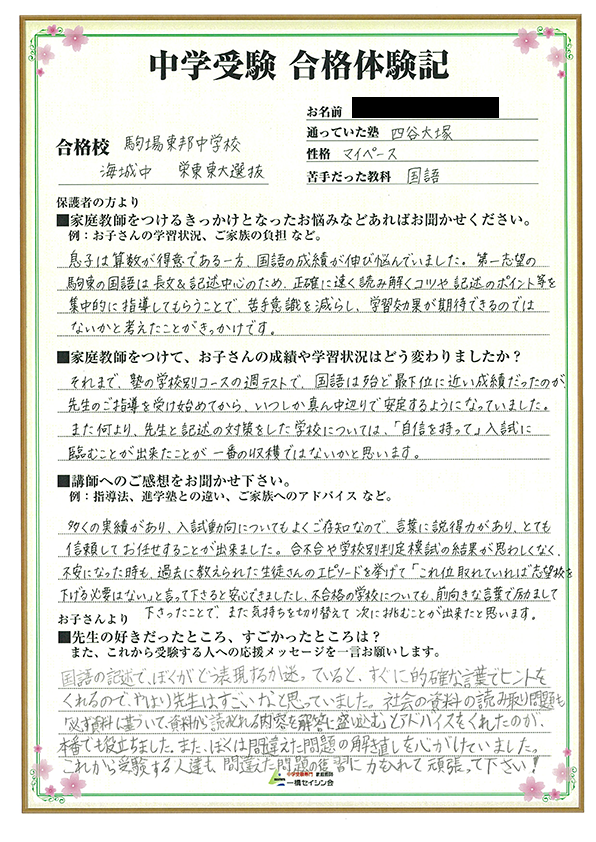 中学受験 合格体験記
お名前
合格校 駒場東邦中学校
海城中 栄東東大選抜
通っていた塾 四谷大塚
性格 マイペース
苦手だった教科 国語
保護者の方より
■家庭教師をつけるきっかけとなったお悩みなどあればお聞かせください。
例：お子さんの学習状況、ご家族の負担 など。
息子は算数が得意である一方、国語の成績が伸び悩んでいました。第一志望の
駒東の国語は長文&記述中心のため、正確に速く読み解くコツや記述のポイント等を
集中的に指導してもらうことで、苦手意識を減らし、学習効果が期待できるのでは
ないかと考えたことがきっかけです。
■家庭教師をつけて、お子さんの成績や学習状況はどう変わりましたか？
それまで、塾の学校別コースの週テストで、国語は殆ど最下位に近い成績だったのが、
先生のご指導を受け始めてから、いつしか真ん中辺りで安定するようになっていました。
また何より、先生と記述の対策をした学校については、「自信を持って」入試に
臨むことが出来たことが一番の収穫ではないかと思います。
■講師へのご感想をお聞かせ下さい。
例：指導法、進学塾との違い、ご家族へのアドバイス など。
多くの実績があり、入試動向についてもよくご存知なので、言葉に説得力があり、とても
信頼してお任せすることが出来ました。合不合や学校別判定模試の結果が思わしくなく、
不安になった時も、過去に教えられた生徒さんのエピソードを挙げて「これ位取れていれば志望校を
下げる必要はない」と言って下さると安心できましたし、不合格の学校についても、前向きな言葉で励まして
下さったことで、また気持ちを切り替えて次に挑むことが出来たと思います。
お子さんより
■先生の好きだったところ、すごかったところは？
また、これから受験する人への応援メッセージを一言お願いします。
国語の記述で、ぼくがどう表現するか迷っていると、すぐに的確な言葉でヒントを
くれるので、やはり先生はすごいなと思っていました。社会の資料の読み取り問題も
「必ず資料に基づいて、資料から読みとれる内容を解答に盛り込む」とアドバイスをくれたのが、
本番でも役立ちました。また、ぼくは間違えた問題の解き直しを心がけていました。
これから受験する人達も、間違えた問題の復習に力を入れて頑張って下さい！
中学受験専門 家庭教師
一橋セイシン会